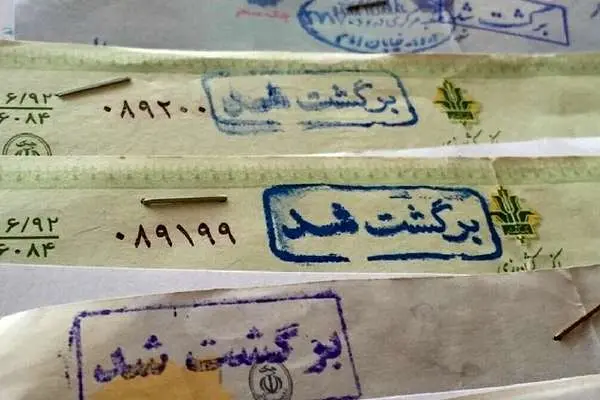 برگشت شد
برگشت شد
۰۸۹۲۰۰
۶/۹۲
۶۰۸۴
برگشت شد
۰۸۹۱۹۹
۶/۹۲
۶۰۸۴
برگشت شد